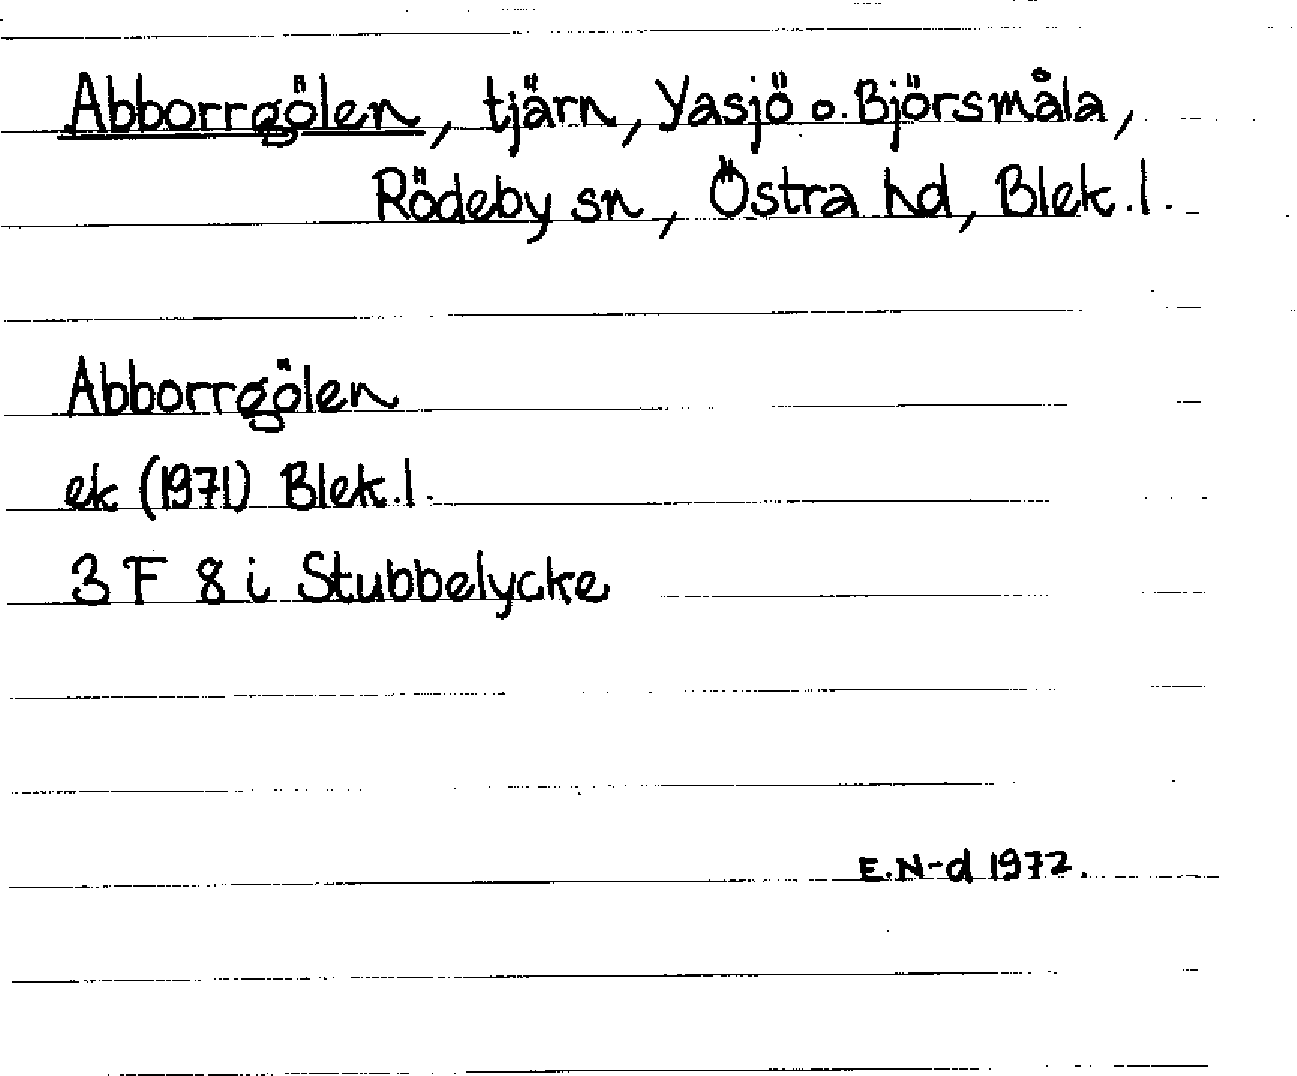 Abborrgölen, tjärn, Yasjö o. Björsmåla,
Rödeby sn, Östra hd, Blek.l.
Abborrgölen
ek (1971) Blek.l.
3 F 8 i Stubbelycke
E.N-d 1972.